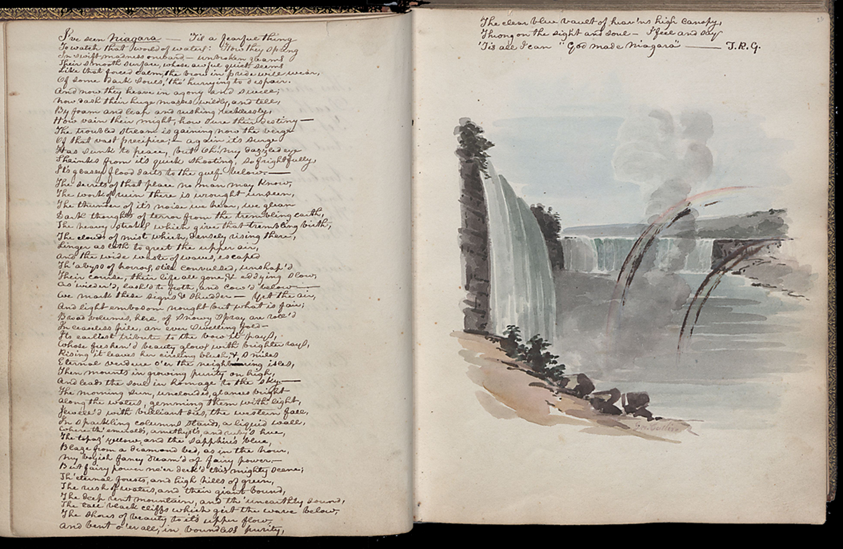 I've seen Niagara — 'Tis a fearful thing
To watch that world of waters! How they spring
In swift madness onward — unbroken gleams
Their smooth surface, whose awful quiet seems
Like that forced calm, the brow in pride will wear,
Of some dark souls, tho' hurrying to despair.
And now they heave in agony and swell;
How dash their huge masses wildly, and tell,
By foam and leap and rushing recklessly,
How vain their might, how sure their destiny —
The troubled stream is gaining now the verge
Of that vast precipice, — again its surge
Has sunk to peace, but Oh! my dazzled eye
Shrinks from its quick shooting, so frightfully,
Its glassy flood darts to the gulf below. —
The secrets of that place no man may know,
The work of ruin there is wrought unseen,
The thunder of its noise we hear, we glean
Dark thoughts of terror from the trembling earth,
The heavy which give that trembling birth,
The clouds of mist which, densely rising there,
Linger as loth to greet the upper air,
And the wide waste of waves, escaped
Th' abyss of horrors, still convulsed, unshap'd
Their course, their life all gone, it eddying slow,
As wilder'd, lash'd to froth, and cow'd below —
We mark these signs & shudder — Yet the air,
And light embosom nought but what is fair;
Broad volumes, here of snowy spray are roll'd
In ceaseless pile, an ever dwelling fold —
Its earliest tribute to the bow it pays,
Whose freshen'd beauty glows with brighter rays,
Rising it leaves her circling blush & smiles
Eternal verdure o'er the neighboring isles,
Then mounts in growing purity on high,
And leads the soul in homage to the sky. —
The morning sun, unclouded, glances bright
Along the waters, gemming them with light,
Jewell'd with brilliant dies, the western fall,
In sparkling columns stands, a liquid wall.
Where th' emeralds, amethysts, and rubies hue,
The topaz' yellow, and the sapphire's blue,
Blaze from a diamond bed, as in the hour,
My boyish fancy dream'd of fairy power —
But fairy power ne'er deck'd this mighty scene;
Th' eternal forests, and high hills of green,
The rush of waters, and their giant bound,
The deep rent mountain, and th' unearthly sound,
The tall black cliffs which girt the wave below,
The show of beauty to its upper flow,
And bent o'er all, in boundless purity,
The clear blue vault of heav'n's high canopy,
Throng on the sight and soul — I feel and say
'Tis all I can "God made Niagara" — J.R.G.